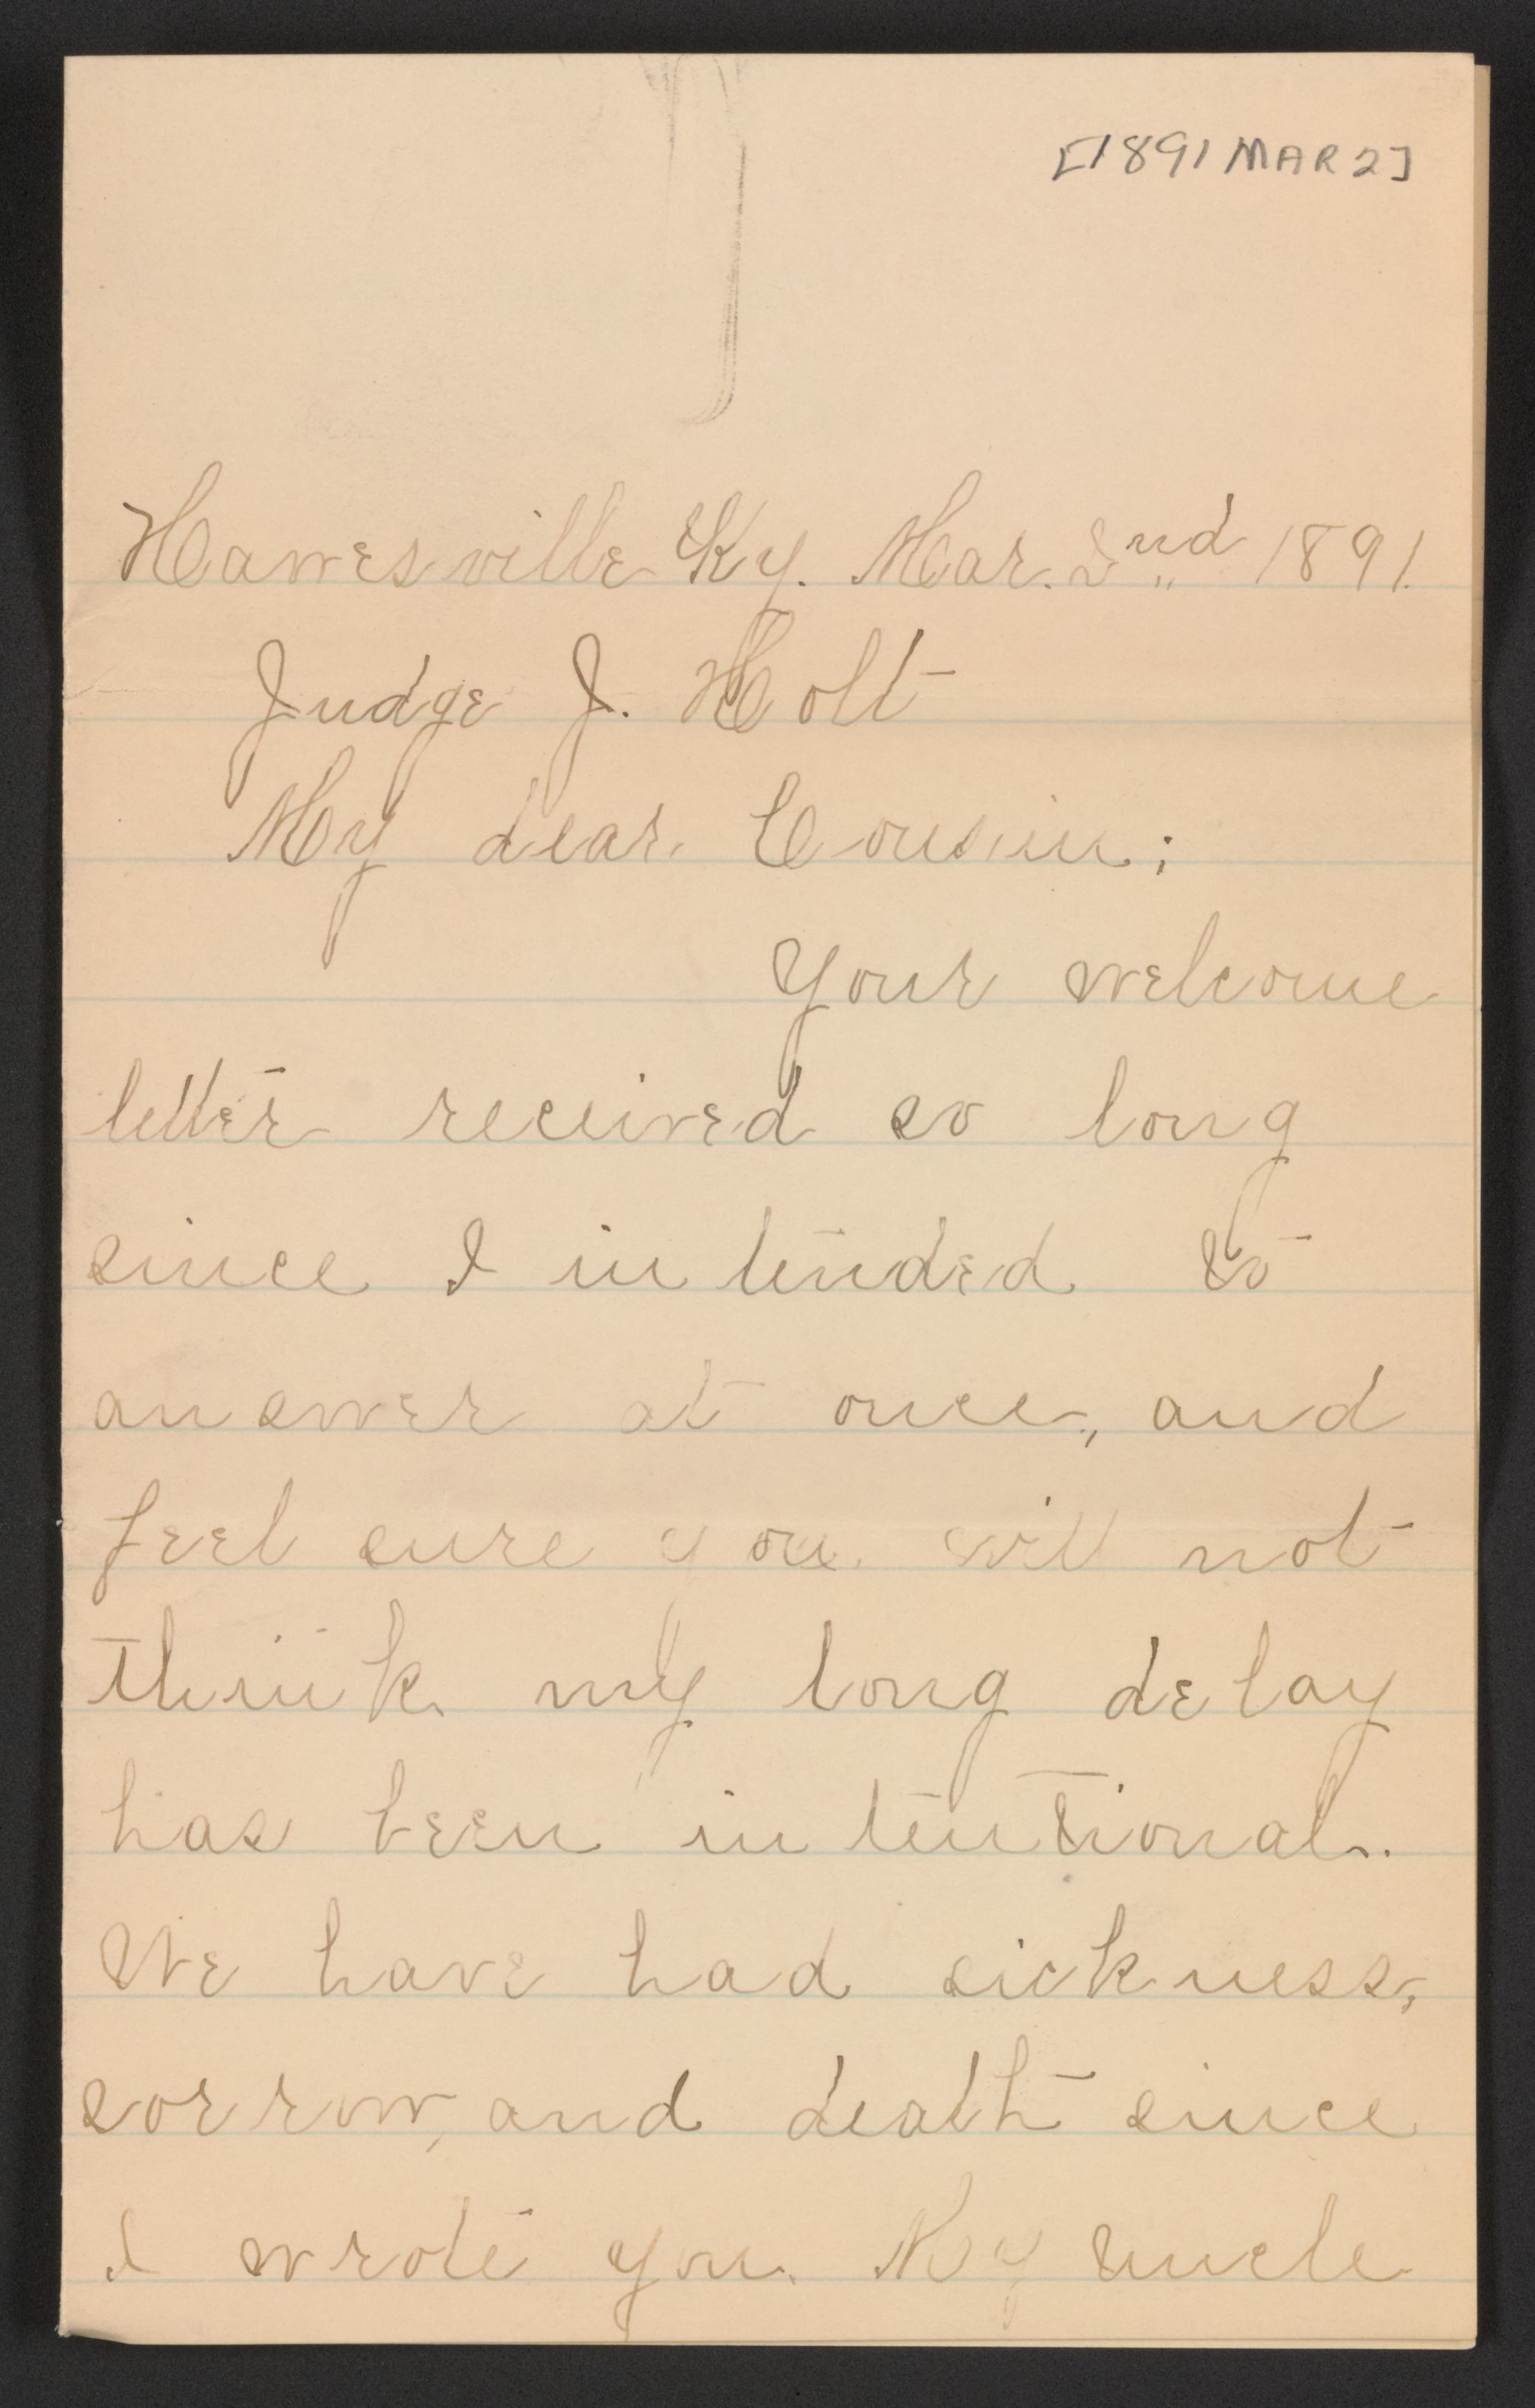 [1891 MAR 2]
Hawesville Ky. Mar. 2nd 1891.
Judge J. Holt
My dear Cousin;
Your welcome
letter received so long
since I intended to
answer at once, and
feel sure you will not
think my long delay
has been intentional.
We have had sickness,
sorrow, and death since
I wrote you. My Uncle